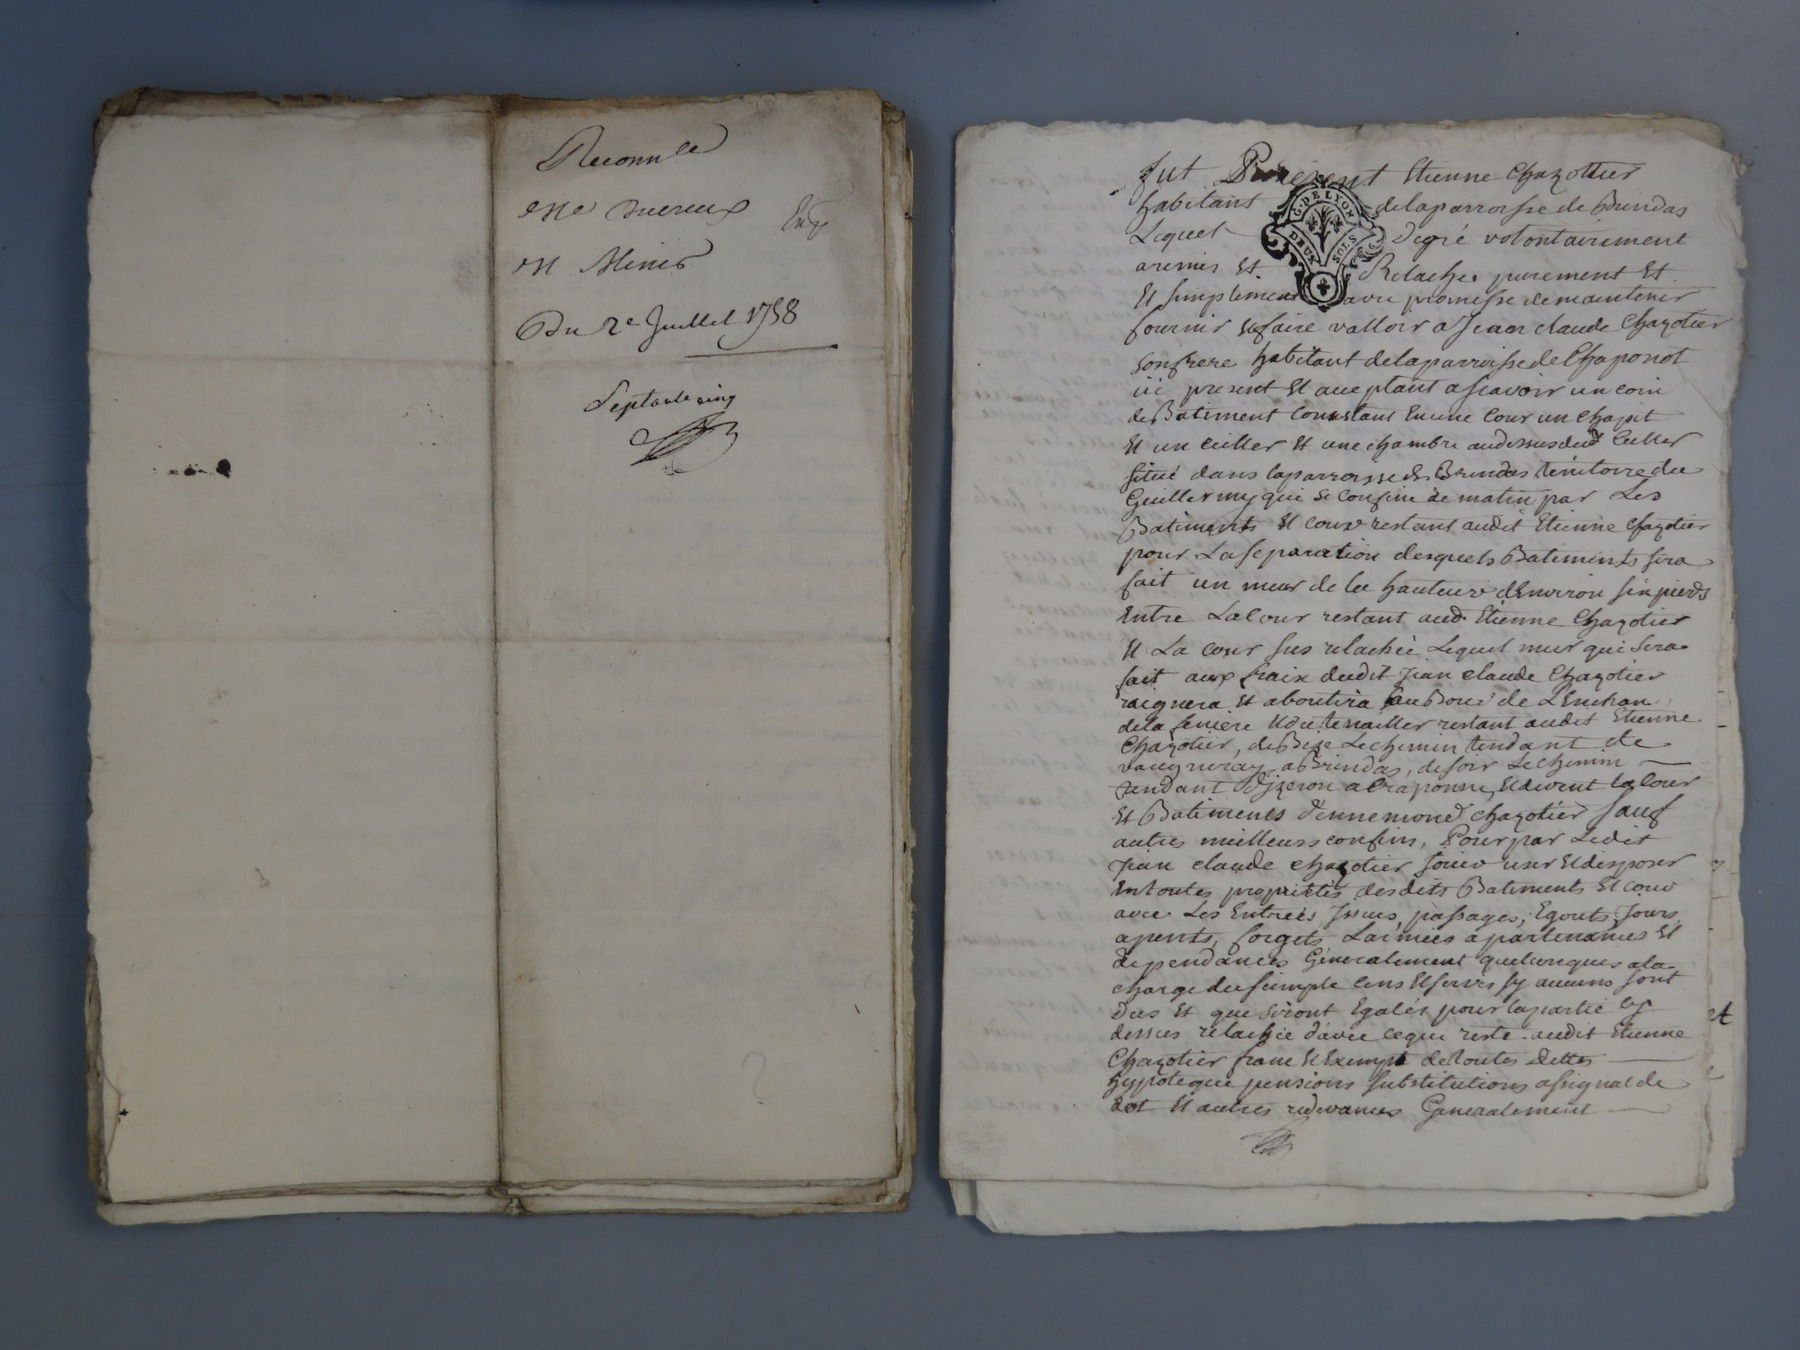 Du 2e Juillet 1758
Septante cinq
fut Present Etienne Chazottier
habitant de la parroisse de Brindas
Lequel de gré volontairement
a remis Et Relaché purement Et
Et simplement avec promesse de maintenir
fournir et faire valloir a Jean claude Chazotier
son frere habitant de la parroisse de Chaponot
ici present Et acceptant a scavoir un coin
de Batiment Consistant En une Cour un Chapit
Et un cellier Et une chambre au dessus dud Cellier
situé dans la parroisse de Brindas territoire du
Guillermy qui se Confine de matin par Les
Batiments Et cour restant audit Etienne Chazotier
pour La separation desquels Batiments sera
fait un mur de la hauteur d'Environ six pieds
Entre La Cour restant aud. Etienne Chazotier
Et La cour sus relachée Lequel mur qui sera
fait aux fraix dudit Jean claude Chazotier
et aboutira de
de la feniere restant audit Etienne
Chazotier, de Bize Le chemin tendant de
vaugneray a Brindas, de soir Le chemin
tendant Dizeron a Craponne, Et de vent la Cour
Et Batiments d'ennemond Chazotier sauf
autres meilleurs confins, Pour par Ledit
Jean claude Chazotier Jouir user Et disposer
En toutes proprietés desdits Batiments Et cour
avec Les Entrées Issues, passages, Egouts, Jours,
forgets, Larmiers apartenances Et
dependances Generalement quelconques a la
charge du simple Cens Et servis sy aucuns sont
dus Et que seront Egalés pour la partie cy
dessus relachée d'avec ce qui reste audit Etienne
Chazotier franc Et Exempt de toutes dettes
hypoteque pensions substitutions assignat de
dot Et autres redevances Generalement
G. DE LYON
DEUX SOLS
et